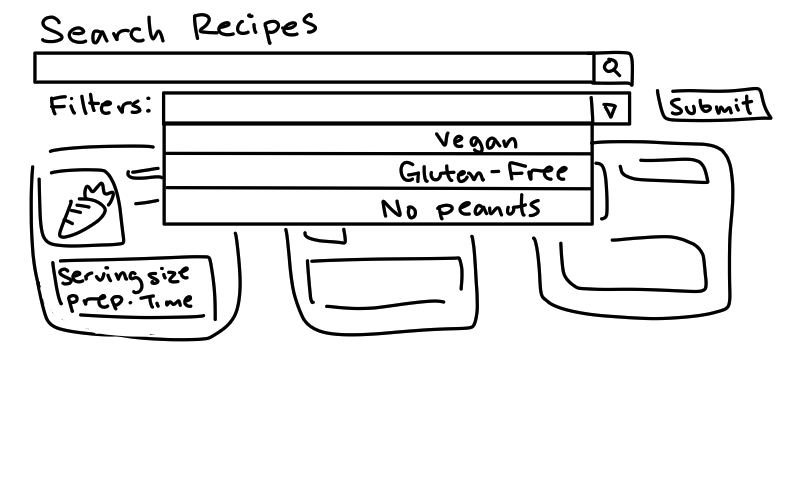 Search Recipes
Filters:
Submit
Vegan
Gluten-Free
No peanuts
Serving size
Prep. Time